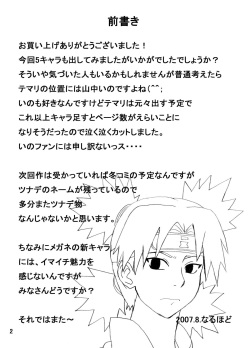 前書き
お買い上げありがとうございました！
今回5キャラも出してみましたがいかがでしたでしょうか？
そういや気づいた人もいるかもしれませんが普通考えたら
テマリの位置には山中いのですよね(^^;
いのも好きなんですけどテマリは元々出す予定で
これ以上キャラ足すとページ数がえらいことに
なりそうだったので泣く泣くカットしました。
いのファンには申し訳ないっス・・・・
次回作は受かっていれば冬コミの予定なんですが
ツナデのネームが残っているので
多分またツナデ物
なんじゃないかと思います。
ちなみにメガネの新キャラ
には、イマイチ魅力を
感じないんですが
みなさんどうですか？
それではまた～
2007.8.なるほど
2